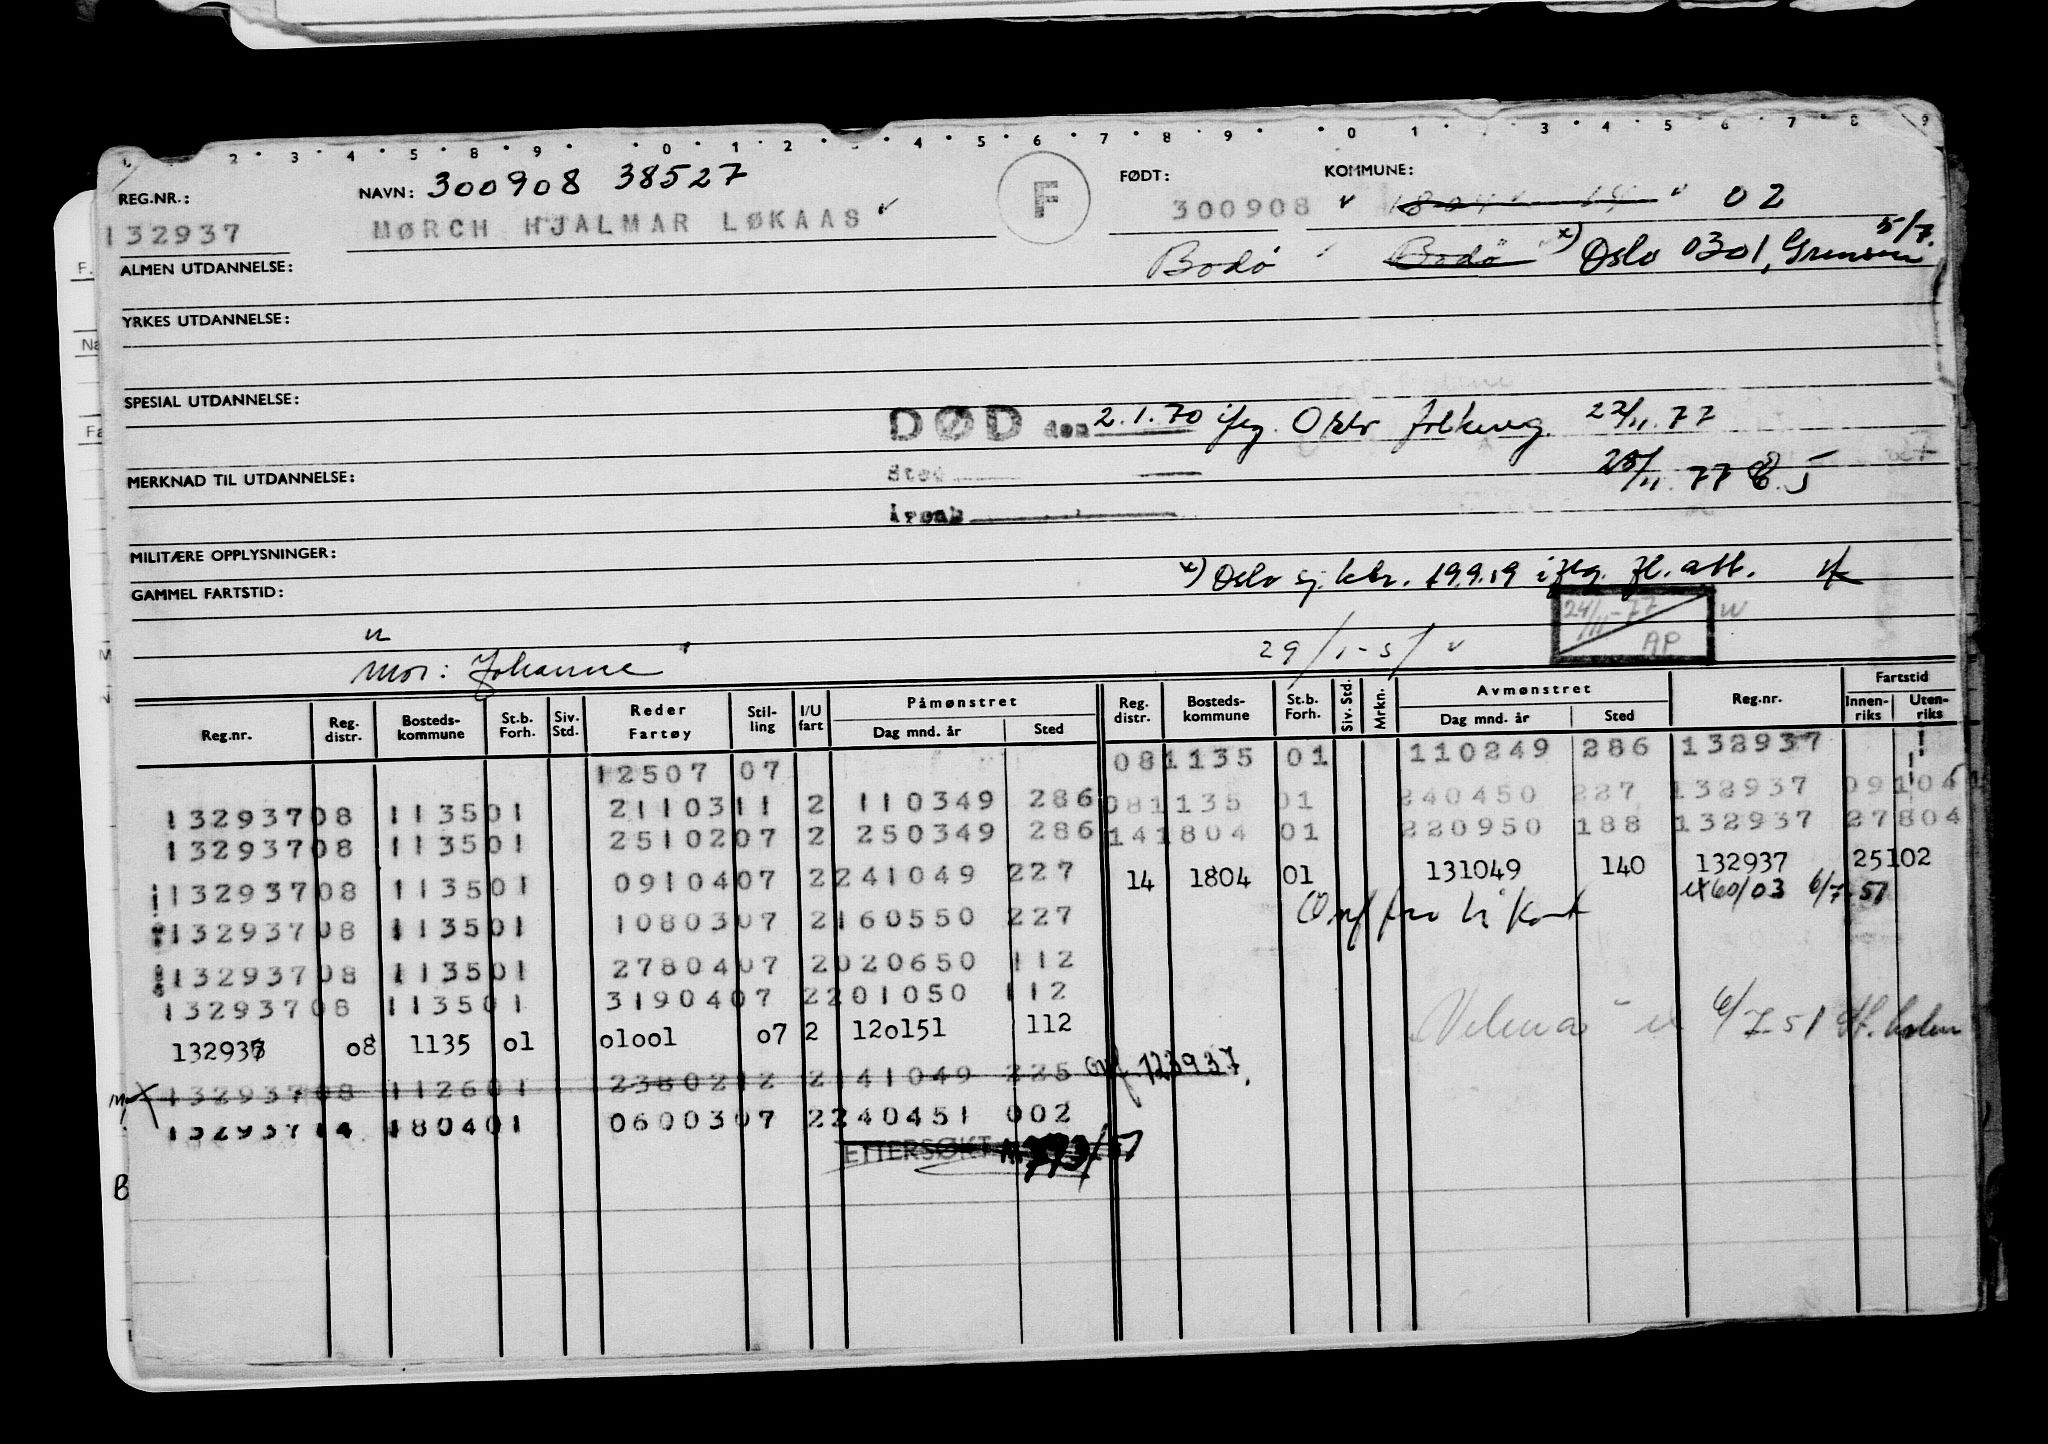 1 2 3 4 5 8 9 0 1 2 4 5 6 7 8 9 0 1 3 4 5 6 7 8 9
REG.NR.: NAVN: 300908 38527 F FØDT: KOMMUNE:
132937 MØRCH HJALMAR LØKAAS 300908 02
ALMEN UTDANNELSE: Bodø Bodø x) Oslo 0301, 5/7.
YRKES UTDANNELSE:
SPESIAL UTDANNELSE:
DØD den 2.1.70 ifg. Oslo folkereg. 22/11.77
MERKNAD TIL UTDANNELSE: Sted 28/11.77
Årsak
MILITÆRE OPPLYSNINGER:
GAMMEL FARTSTID: x) Oslo sj.ktr. 19.9.59 iflg. fl. att.
24/11-77
AP
Mor: Johanne 29/1-51
Reg.nr. Reg. distr. Bosteds-kommune St.b. Forh. Siv. Std. Reder Fartøy Stil-ling I/U fart Påmønstret Dag mnd. år Sted Reg. distr. Bosteds-kommune St.b. Forh. Siv. Std. Mrkn. Avmønstret Dag mnd. år Sted Reg.nr. Fartstid Innen-riks Uten-riks
12507 07 081135 01 110249 286 132937
13293708 113501 2110311 2 110349 286 081135 01 240450 227 132937 09104
13293708 113501 2510207 2 250349 286 141804 01 220950 188 132937 27804
13293708 113501 0910407 2241049 227 14 1804 01 131049 140 132937 25102
13293708 113501 1080307 2160550 227 60/03 6/7-51
13293708 113501 2780407 2020650 112
13293708 113501 3190407 2201050 112
132937 o8 1135 o1 o1oo1 o7 2 12o151 112 6/7-51
13293708 112601 2380212 2141049 225 123937.
13293714 180401 0600307 2240451 002
ETTERSØKT
B